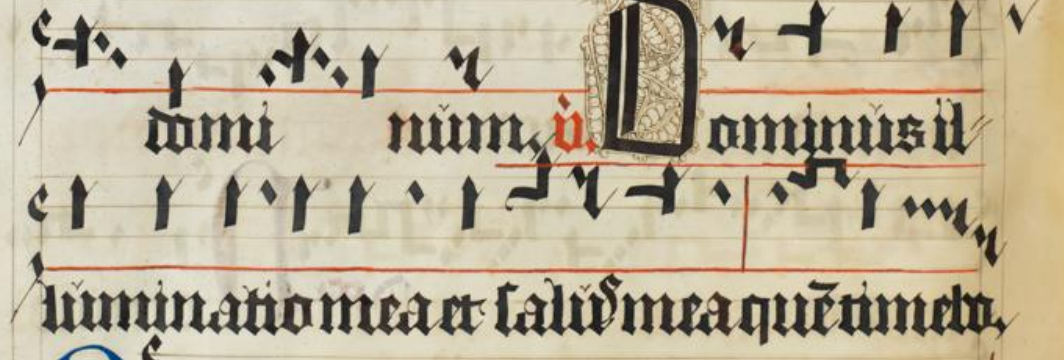 domi num, v̇. Dominus il
luminatio mea et salus mea quē timebo,